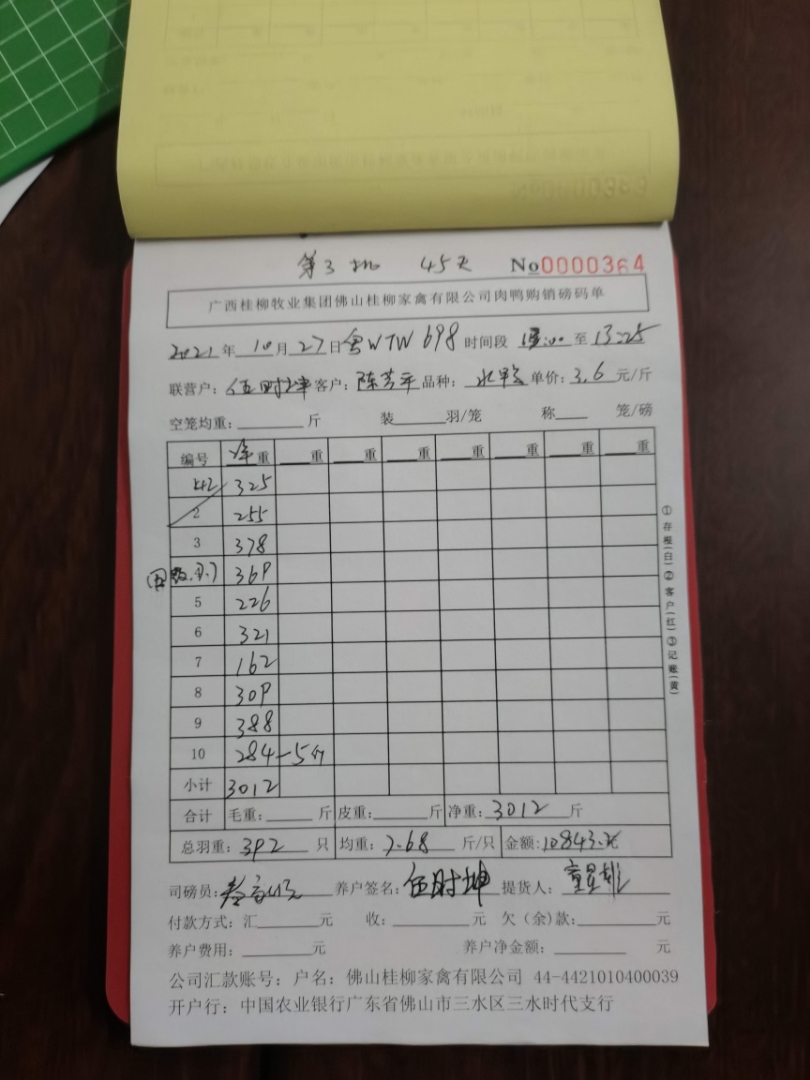 第3批 45天 No0000364
广西桂柳牧业集团佛山桂柳家禽有限公司肉鸭购销磅码单
2021年10月27日粤WTW698时间段 :00至13:25
联营户:伍时坤客户:陈芳平品种:水鸭单价:3.6元/斤
空笼均重:斤 装羽/笼 称 笼/磅
编号 净重 重 重 重 重 重 重 重
325
2 255
3 378
369
5 226
6 321
7 162
8 309
9 388
10 284-5斤
小计 3012
合计 毛重:斤 皮重:斤 净重:3012斤
总羽重:392只 均重:7.68斤/只 金额:10843.元
司磅员: 养户签名:伍时坤 提货人:
付款方式:汇元 收:元 欠(余)款:元
养户费用:元 养户净金额:元
公司汇款账号:户名:佛山桂柳家禽有限公司 44-4421010400039
开户行:中国农业银行广东省佛山市三水区三水时代支行
①存根(白)②客户(红)③记账(黄)